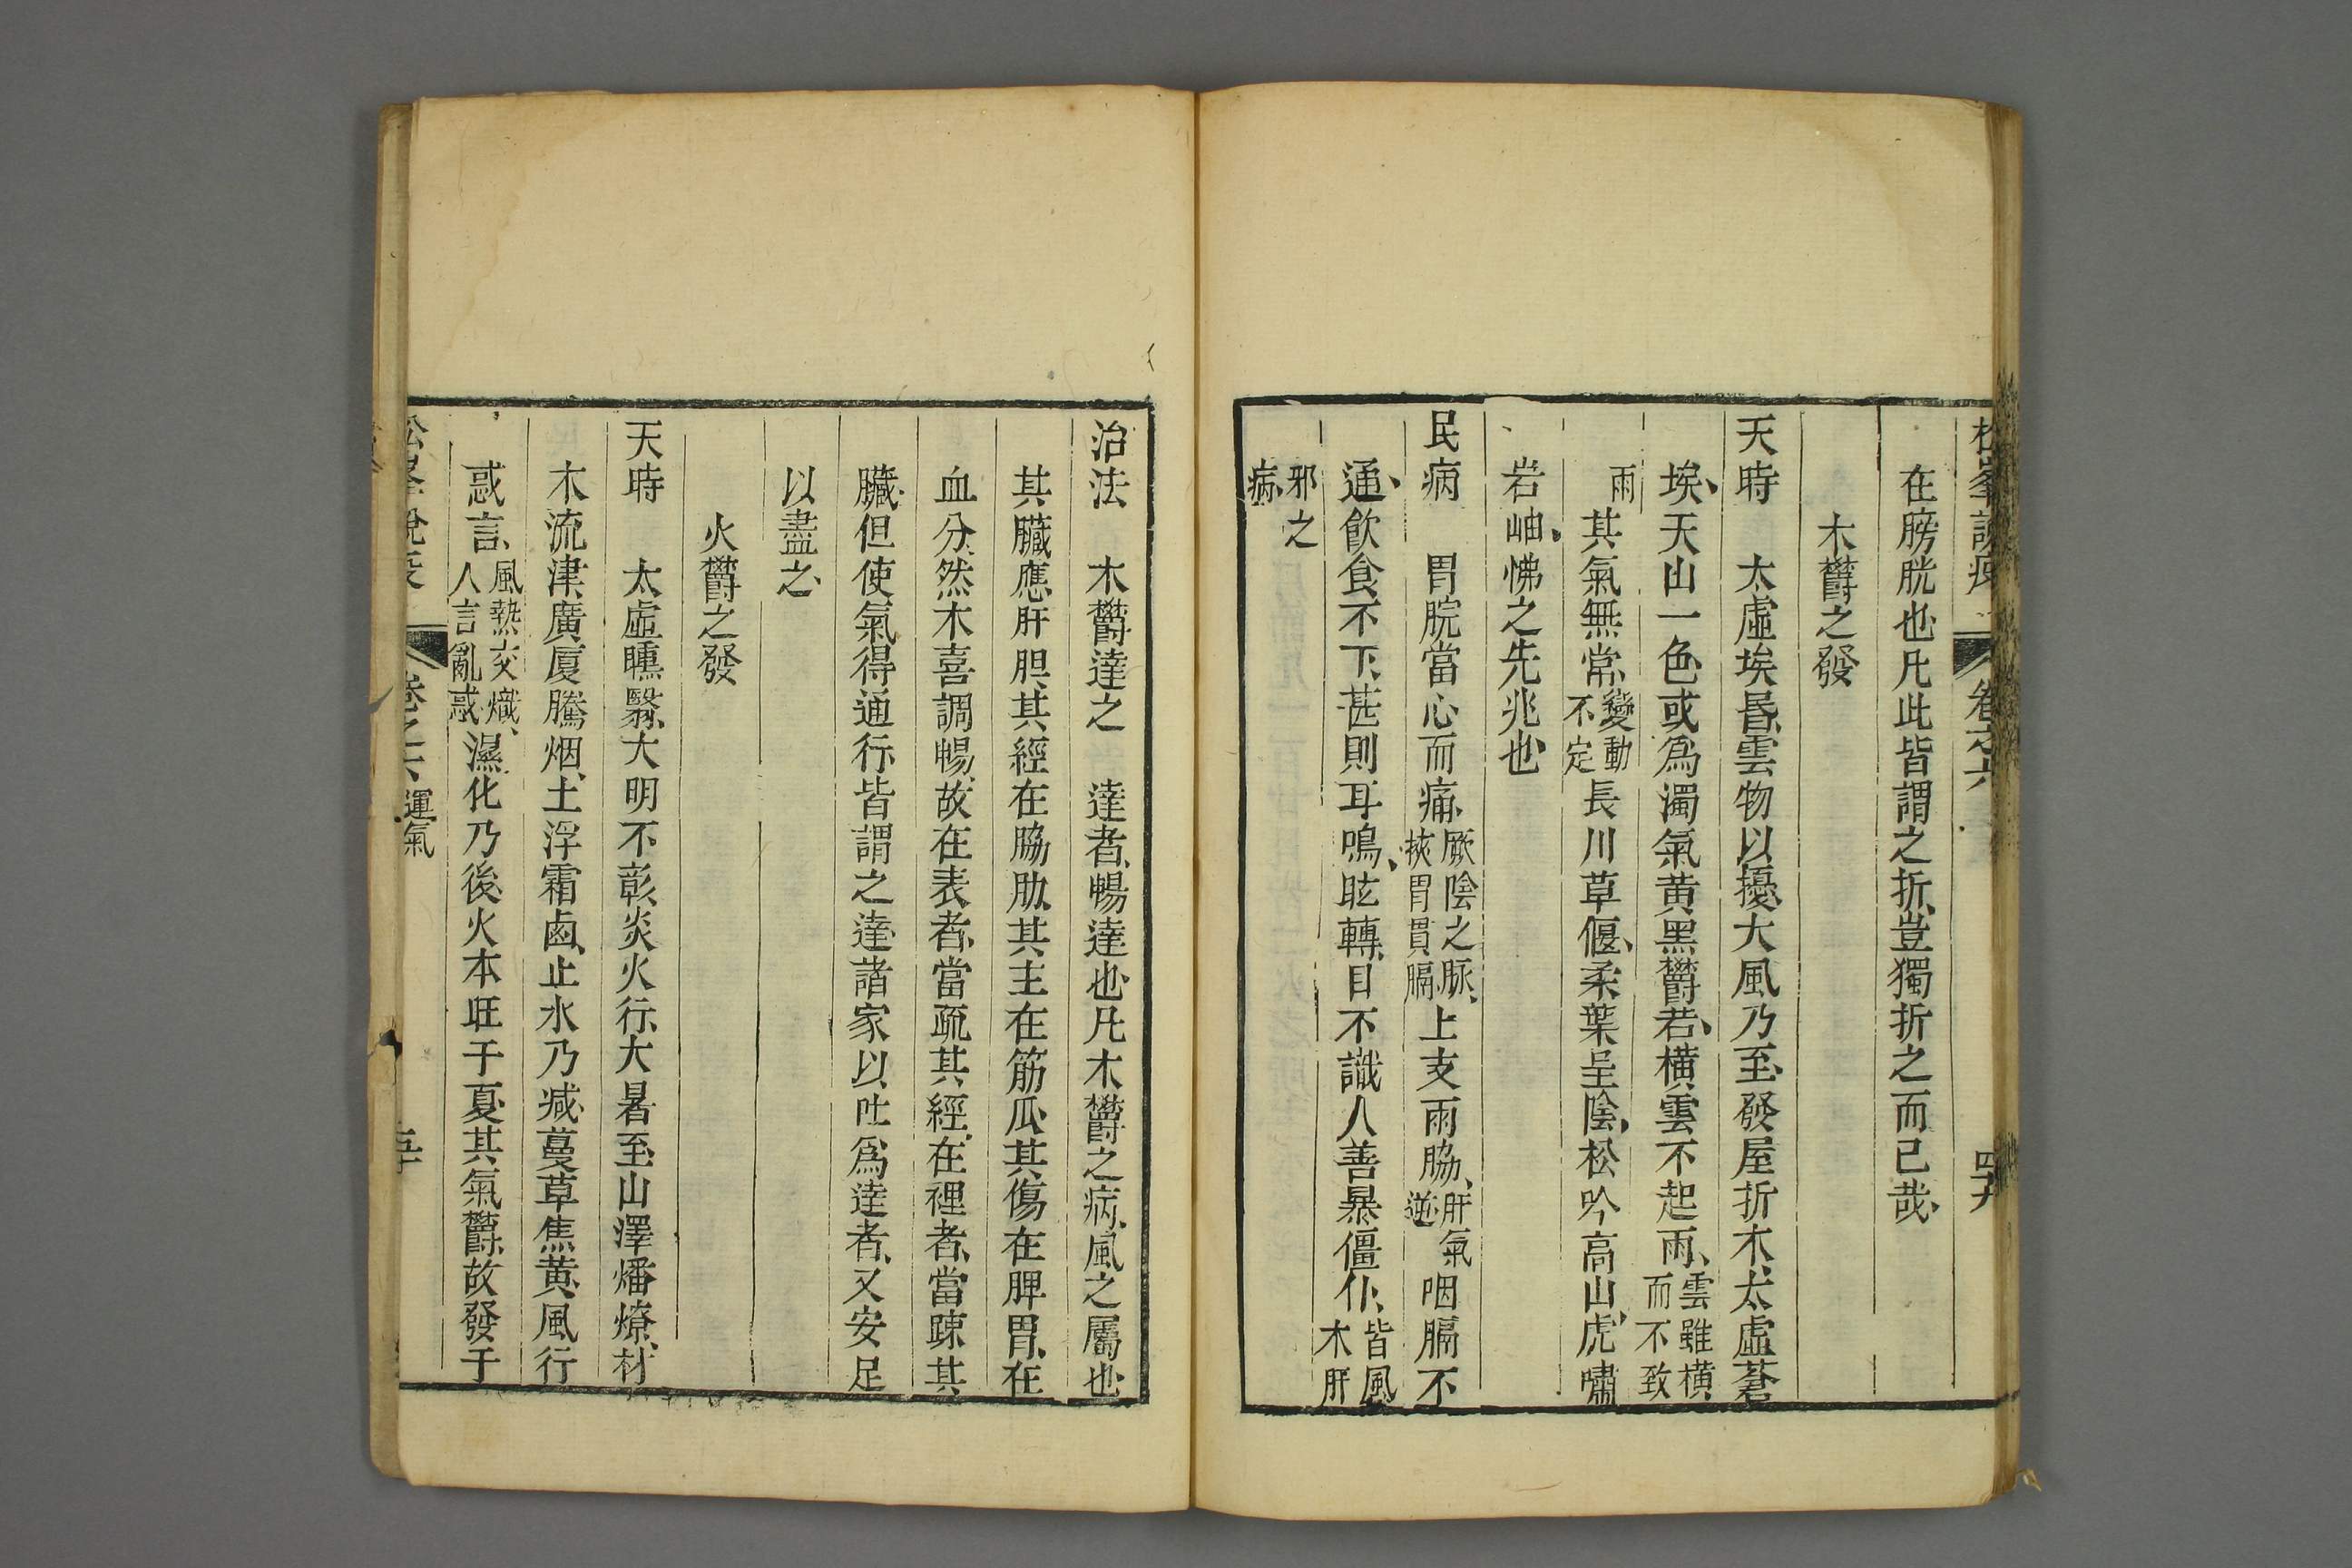 松峯說疫 卷之六
在膀胱也、凡此皆謂之折、豈獨折之而已哉、
木鬱之發
天時 太虛埃昬、雲物以擾、大風乃至、發屋折木、太虛蒼
埃、天山一色、或爲濁氣黄黑鬱若、橫雲不起雨、雲雖橫、而不致
雨其氣無常、變動不定長川草偃、柔葉呈陰、松吟高山、虎嘯
岩岫、怫之先兆也、
民病 胃脘當心而痛、厥陰之脉、挾胃貫膈上支兩脇、肝氣逆咽膈不
通、飲食不下、甚則耳鳴、眩轉、目不識人善暴僵仆、皆風木肝
邪之病、
治法 木鬱達之 達者、暢達也、凡木鬱之病、風之屬也、
其臟應肝胆、其經在脇肋、其主在筋瓜、其傷在脾胃、在
血分、然木喜調暢、故在表者、當疏其經、在裡者、當踈其
臟、但使氣得通行、皆謂之達、諸家以吐爲達者、又安足
以盡之、
火鬱之發
天時 太虛曛翳、大明不彰、炎火行、大暑至、山澤燔燎、材
木流津、廣厦騰烟、土浮霜鹵、止水乃减、蔓草焦黄、風行
惑言、風熱交熾、人言亂惑、濕化乃後、火本旺于夏、其氣鬱、故發于
卷之六、運氣 五十